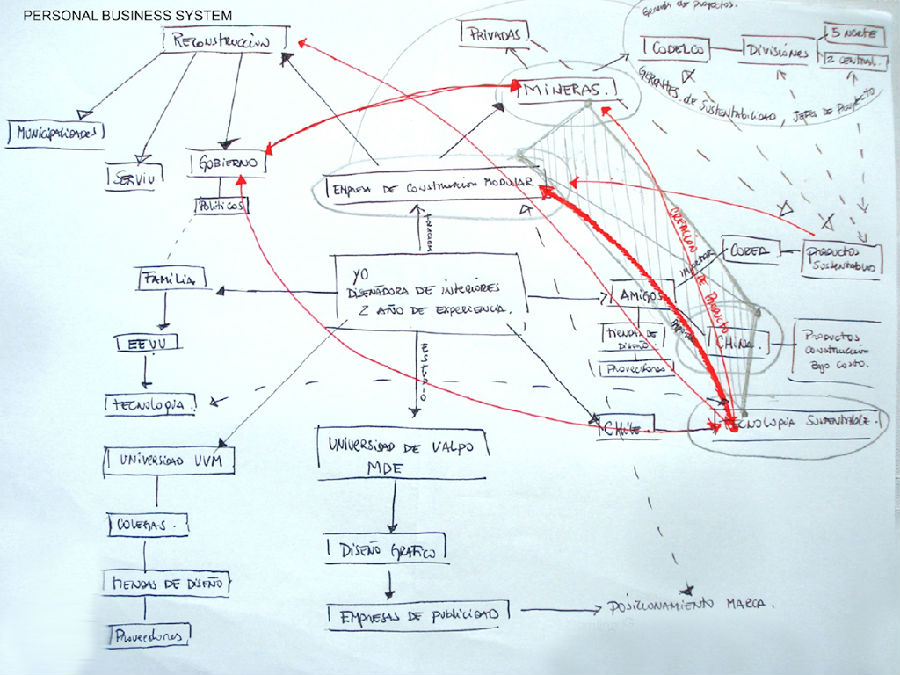 PERSONAL BUSINESS SYSTEM
RECONSTRUCCION
PRIVADAS
Gerentes de proyectos.
CODELCO
DIVISIÓNES
5 NORTE
2 CENTRAL.
GERENTES DE SUSTENTABILIDAD, JEFES DE PROYECTO
MINERAS.
MUNICIPALIDADES
SERVIU
GOBIERNO
POLITICOS
EMPRESA DE CONSTRUCCION MODULAR
CREACION DE PRODUCTO
COREA
PRODUCTOS
SUSTENTABLES
FAMILIA
YO
DISEÑADORA DE INTERIORES
2 AÑO DE EXPERIENCIA.
AMIGOS
TIENDAS DE
DISEÑO
PROVEEDORES
CHINA.
PRODUCTOS
CONSTRUCCION
BAJO COSTO.
EEUU
TECNOLOGIA
CHILE
TECNOLOGIA SUSTENTABLE.
UNIVERSIDAD UVM
UNIVERSIDAD DE VALPO
MDE
COLEGAS.
DISEÑO GRAFICO
TIENDAS DE DISEÑO
EMPRESAS DE PUBLICIDAD
POSICIONAMIENTO MARCA.
Proveedores